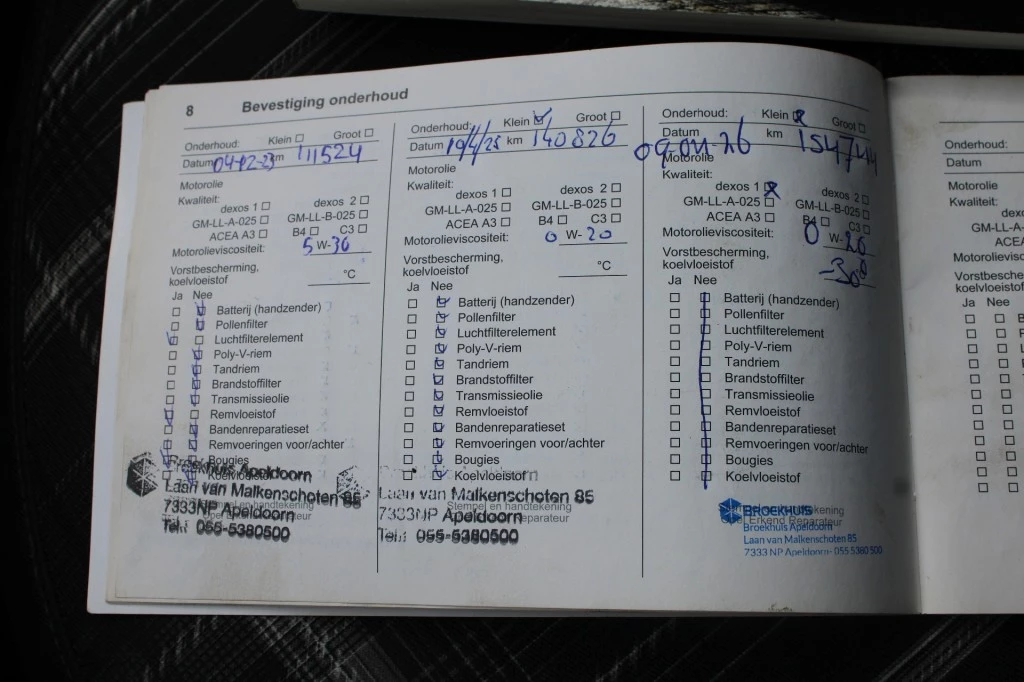 8 Bevestiging onderhoud
Onderhoud: Klein Groot
Datum 04-12-23 km 111524
Motorolie
Kwaliteit:
dexos 1 dexos 2
GM-LL-A-025 GM-LL-B-025
ACEA A3 B4 C3
Motorolieviscositeit: 5 W-30
Vorstbescherming,
koelvloeistof °C
Ja Nee
Batterij (handzender)
Pollenfilter
Luchtfilterelement
Poly-V-riem
Tandriem
Brandstoffilter
Transmissieolie
Remvloeistof
Bandenreparatieset
Remvoeringen voor/achter
Bougies
Koelvloeistof
Broekhuis Apeldoorn
Laan van Malkenschoten 85
7333NP Apeldoorn
Tel.: 055-5380500
Onderhoud: Klein Groot
Datum 19/4/25 km 140826
Motorolie
Kwaliteit:
dexos 1 dexos 2
GM-LL-A-025 GM-LL-B-025
ACEA A3 B4 C3
Motorolieviscositeit: 0 W-20
Vorstbescherming,
koelvloeistof °C
Ja Nee
Batterij (handzender)
Pollenfilter
Luchtfilterelement
Poly-V-riem
Tandriem
Brandstoffilter
Transmissieolie
Remvloeistof
Bandenreparatieset
Remvoeringen voor/achter
Bougies
Koelvloeistof
Laan van Malkenschoten 85
Stempel en handtekening
7333NP Apeldoorn
Tel.: 055-5380500
Onderhoud: Klein Groot
Datum 09-04-26 km 154744
Motorolie
Kwaliteit:
dexos 1 dexos 2
GM-LL-A-025 GM-LL-B-025
ACEA A3 B4 C3
Motorolieviscositeit: 0 W-20
Vorstbescherming,
koelvloeistof -30
Ja Nee
Batterij (handzender)
Pollenfilter
Luchtfilterelement
Poly-V-riem
Tandriem
Brandstoffilter
Transmissieolie
Remvloeistof
Bandenreparatieset
Remvoeringen voor/achter
Bougies
Koelvloeistof
BROEKHUIS
Erkend Reparateur
Broekhuis Apeldoorn
Laan van Malkenschoten 85
7333 NP Apeldoorn - 055 5380 500
Onderhoud:
Datum
Motorolie
Kwaliteit:
Motorolieviscos
Vorstbescherm
koelvloeistof
Ja Nee